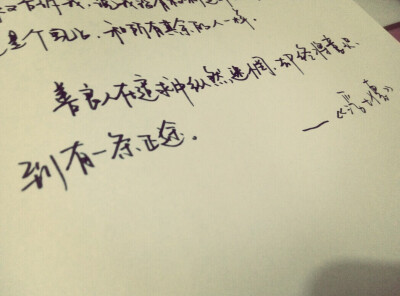 是个晚上，和所有其余的人一样。
善良人在追求中纵然迷惘，却终将意识
到有一条正途.
——《浮士德》